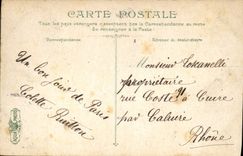 CARTE POSTALE
Tous les pays étrangers n'acceptent pas la Correspondance au recto
Se renseigner à la Poste
Correspondance
Adresse du destinataire
Un bon jour de Paris
Colette
Monsieur
propriétaire
rue Coste 21 à Cuire
par Caluire
Rhône